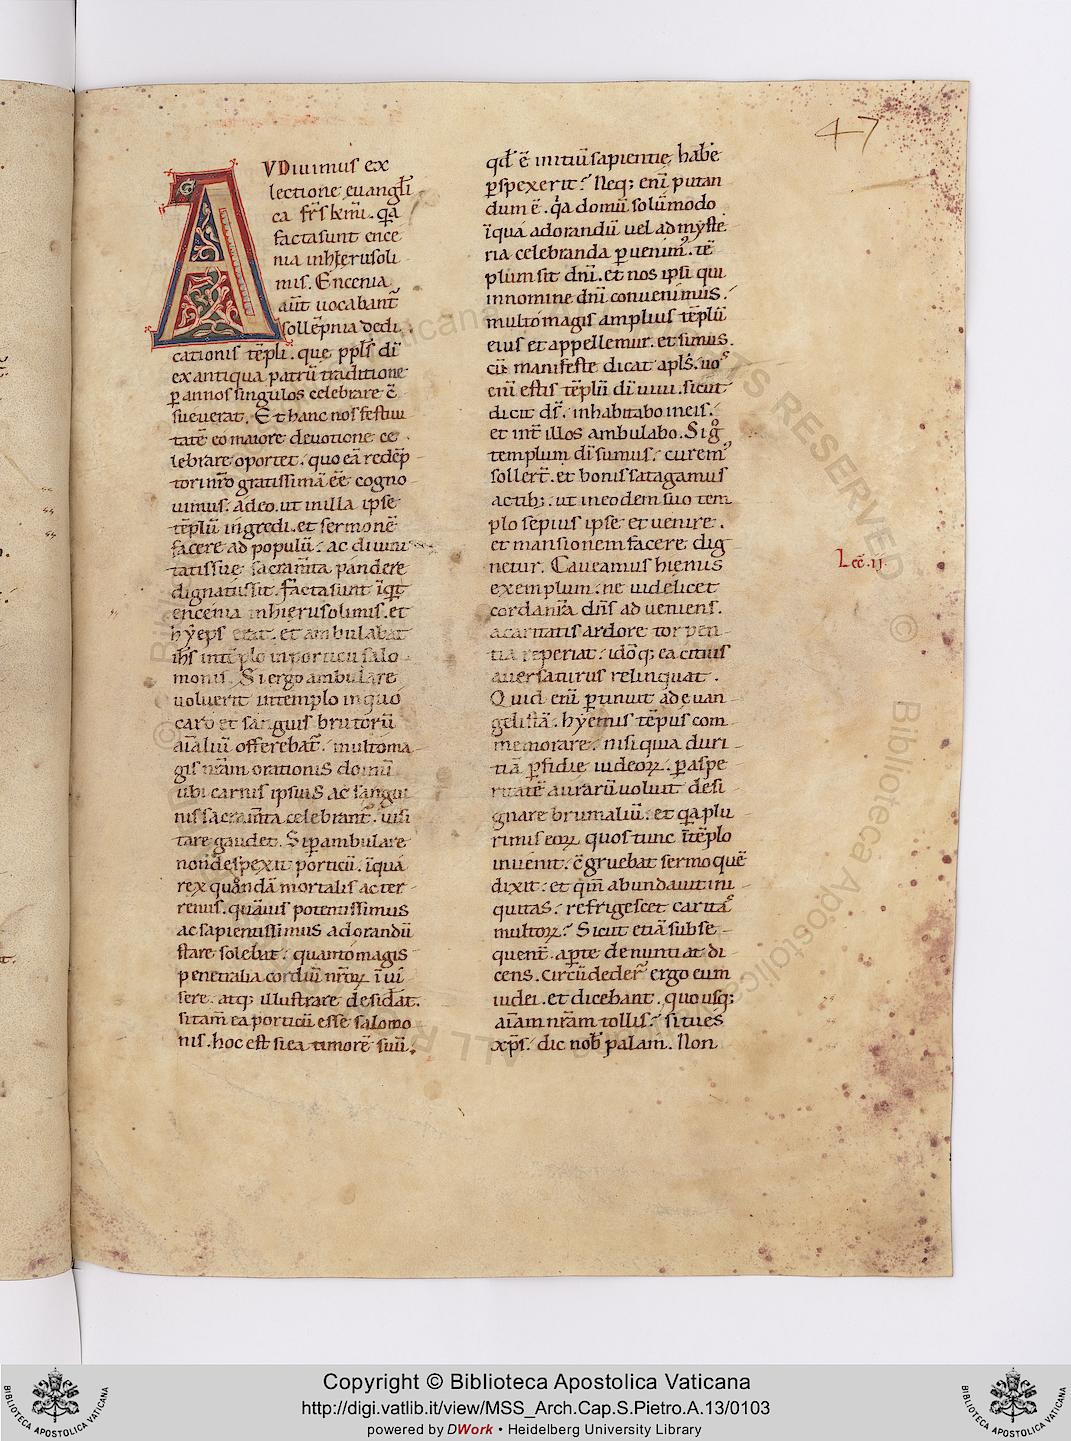 47
AVDiuimus ex
lectione euangli
ca fr̄s k̄mi. q̄a
facta sunt ence
nia inhierusoli
mis. Encenia
aūt uocabant᷒
sollēpnia dedi
cationis tēpli. que ppl̄s dī
ex antiqua patrū traditione
ꝑ annos singulos celebrare ↄ̄
sueuerat. Et hanc nos festiui
tatē eo maiore deuotione ce
lebrare oportet. quo eā redēp
tori nr̄o gratissimā eē cogno
uimus. adeo. ut in illa ipse
tēplū ingredi. et sermonē
facere ad populū: ac diuini
tatis sue sacram̄ta pandere
dignatus sit. Facta sunt īqt
encenia inhierusolimis. et
hyēps erat. et ambulabat
ih̄s in tēplo in porticu salo
monis. Si ergo ambulare
uoluerit in templo in quo
caro et sanguis brutorū
aīaliū offerebat᷒. multo ma
gis nr̄am orationis domū
ubi carnis ipsius ac sangui
nis sacram̄ta celebrant᷒. uisi
tare gaudet. Si ꝑambulare
non despexit porticū. īqua
rex quōndā mortalis ac ter
renus. quāuis potentissimus
ac sapientissimus adorandū
stare solebat: quanto magis
penetralia cordiū nr̄oꝝ ī ui
sere. atq; illustrare desidat.
si tam̄ ea porticū esse salomo
nis. hoc est si ea timorē suū.
qd̄ ē initiū sapientie, habe
ꝑspexerit. Neq; enī putan
dum ē. q̄a domū solūmodo
īqua adorandū uel ad myste
ria celebranda ꝑuenim᷒. tē
plum sit dnī. et nos ipsi qui
in nomine dnī conuenimus.
multo magis amplius tēplū
eius et appellemur. et simus.
cū manifeste dicat apl̄s. uo᷒
enī estis tēplū dī uiui. sicut
dicit ds̄. inhabitabo in eis.
et int̄ illos ambulabo. Si g̊
templum dī sumus: curem᷒
sollert̄. et bonis satagamus
actib; ut in eodem suo tem
plo sepius ipse et uenire.
et mansionem facere dig
netur. Caueamus hiemis
exemplum. ne uidelicet
cor da nr̄a dn̄s adueniens.
a caritatis ardore torpen
tia reperiat. idoq; ea citius
auersaturus relinquat.
Quid enī ꝑtinuit ad euan
gelistā. hyemis tēpus com
memorare: nisi quia duri
tiā ꝑfidie iudeoꝝ. ꝑ aspe
ritatē aurarū uoluit desi
gnare brumaliū: et q̄a plu
rimis eoꝝ quos tunc ī tēplo
inuenit. ↄ̄gruebat sermo quē
dixit: et qm̄ abundauit ini
quitas. refrigescet carita᷒
multoꝝ. Sicut etiā subse
quent̄ aꝑte denuntiat di
cens. Circūdeder̄ ergo eum
iudei. et dicebant. quo usq;
aīam nr̄am tollis: si tu es
xp̄s. dic nob̄ palam. Non
Lec̄. ii.
Copyright © Biblioteca Apostolica Vaticana
http://digi.vatlib.it/view/MSS_Arch.Cap.S.Pietro.A.13/0103
powered by DWork • Heidelberg University Library
BIBLIOTECA APOSTOLICA VATICANA
BIBLIOTECA APOSTOLICA VATICANA